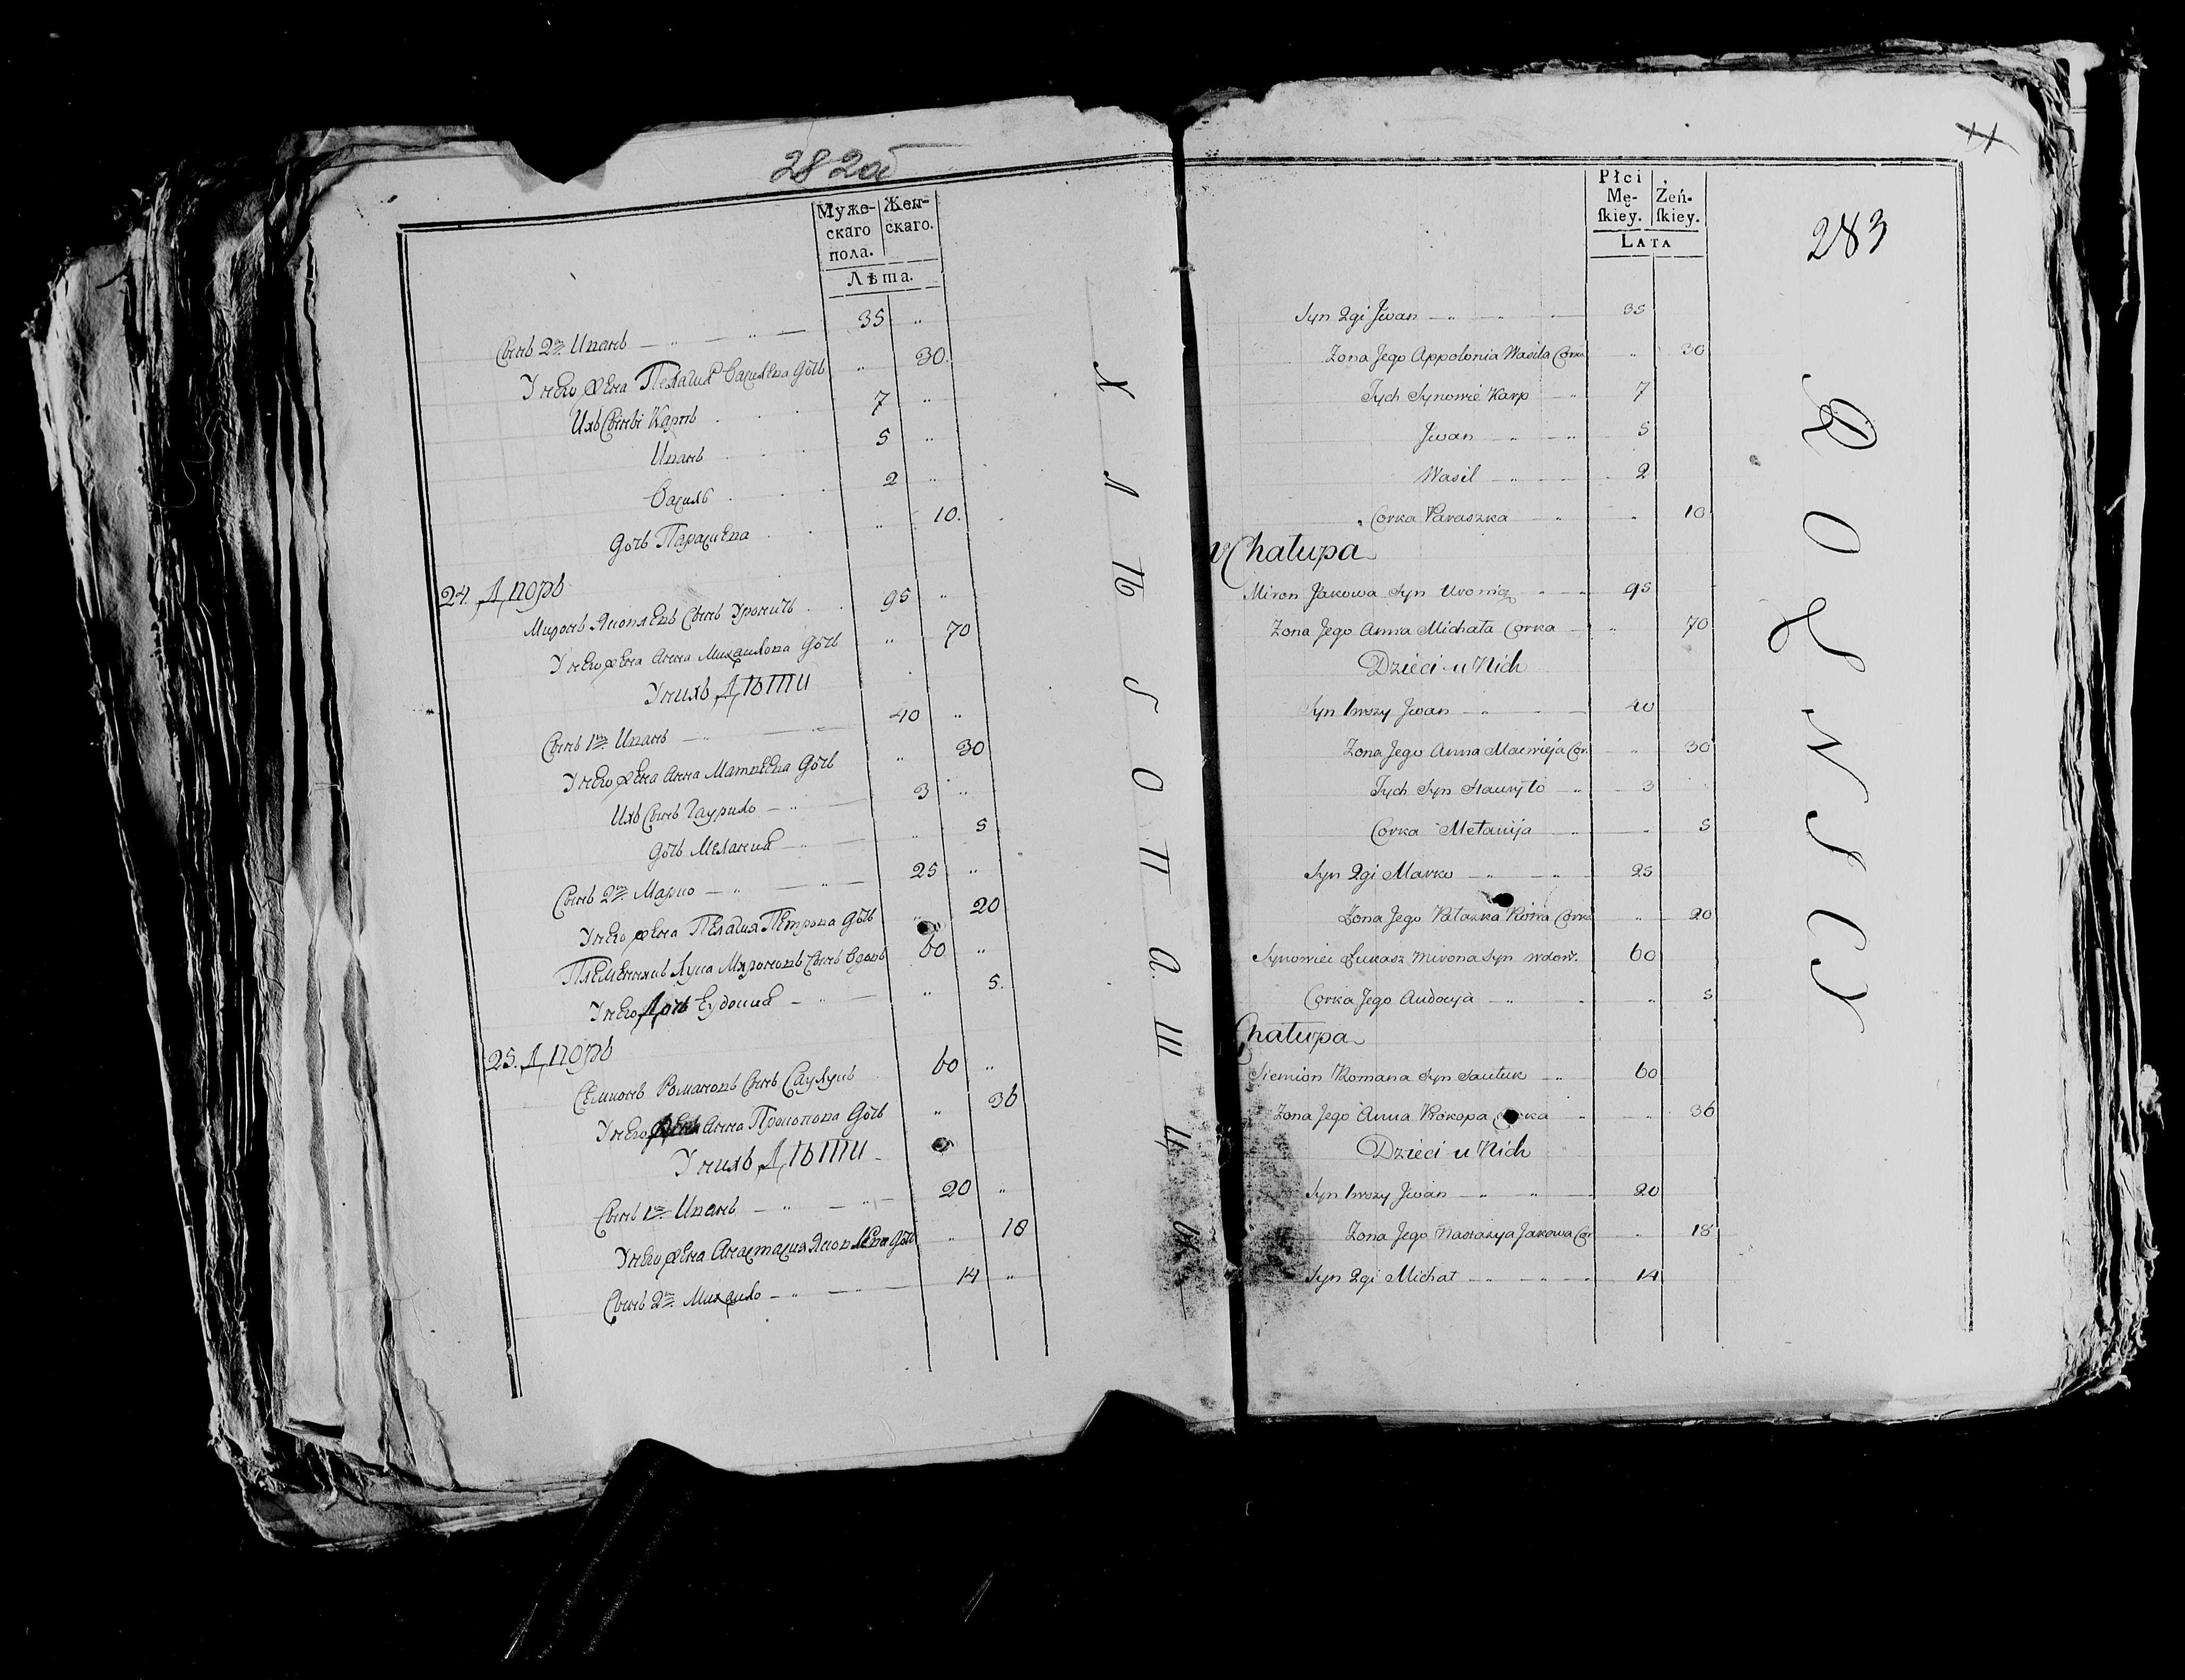 282а
Муже-
скаго
пола.
Жен-
скаго.
Лѣта.
Сынъ 2й Иванъ 35 "
У него жена Пелагия Василева дочь " 30.
Ихъ Сыны Карпъ 7 "
Иванъ 5 "
Василь 2 "
дочь Парасцева " 10.
24. Дворъ
Миронъ Яковлевъ Сынъ Уроничь 95 "
У него жена Анна Михаилова дочь " 70
У нихъ Дѣти
Сынъ 1й Иванъ 40 "
У него жена Анна Матвеева дочь " 30
Ихъ Сынъ Гаурило 3 "
дочь Мелания " 5
Сынъ 2й Марко 25 "
У него жена Пелагия Петрова дочь " 20
Племенникъ Лука Мироновъ Сынъ вдовъ 60 "
У него Дочь Еудокия " 5.
25. Дворъ
Семионъ Романовъ Сынъ Саулукъ 60 "
У него жена Анна Прокопова дочь " 36
У нихъ Дѣти
Сынъ 1й Иванъ 20 "
У него жена Анастасия Яковлева дочь " 18
Сынъ 2й Михаило 14 "
Х Л Ѣ Б О П А Ш Ц Ы
283
Płci
Mę-
ſkiey.
Żeń-
ſkiey.
LATA
Syn 2gi Jwan 35
Zona Jego Appolonia Wasila Corka " 30
Tych Synowie Karp 7
Jwan 5
Wasil 2
Corka Paraszka " 10
Chałupa
Miron Jakowa Syn Uronicz 95
Zona Jego Anna Michała Corka " 70
Dzieci u Nich
Syn 1wszy Jwan 40
Zona Jego Anna Macwieja Cor. " 30
Tych Syn Hauryło 3
Corka Mełanija " 5
Syn 2gi Marko 25
Zona Jego Pałazka Piotra Corka " 20
Synowiec Łukasz Mirona Syn wdow. 60
Corka Jego Audocyja " 5
Chałupa
Siemion Romana Syn Saułuk 60
Zona Jego Anna Prokopa Corka " 36
Dzieci u Nich
Syn 1wszy Jwan 20
Zona Jego Nastazya Jakowa Cor " 18
Syn 2gi Michał 14
R O L N I C Y